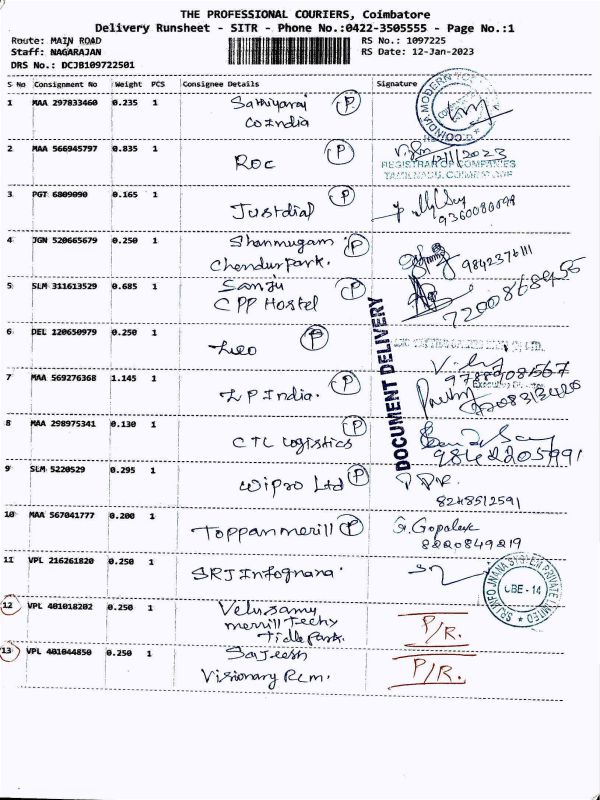 THE PROFESSIONAL COURIERS, Coimbatore
Delivery Runsheet - SITR - Phone No.:0422-3505555 - Page No.:1
Route: MAIN ROAD RS No.: 1097225
Staff: NAGARAJAN RS Date: 12-Jan-2023
DRS No.: DCJB109722501
S No Consignment No Weight PCS Consignee Details Signature
1 MAA 297833460 0.235 1 Sathiyaraj P
CoIndia
COINDIA MODERN
2 MAA 566945797 0.835 1 ROC P
12/1/2023
REGISTRAR OF COMPANIES
TAMILNADU, COIMBATORE
3 PGT 6809090 0.165 1 Justdial P
9360080898
4 JGN 520665679 0.250 1 Shanmugam P
Chendur Park. 9842376111
5 SLM 311613529 0.685 1 Sanju P
CPP Hostel 7200868956
DOCUMENT DELIVERY
6 DEL 120650979 0.250 1 Leo P
7 MAA 569276368 1.145 1 LP India. P
Executive
8 MAA 298975341 0.130 1 CTL Logistics P
9842205991
9 SLM 5220529 0.295 1 Wipro Ltd P
8248512591
10 MAA 567041777 0.200 1 Toppanmerill P G. Gopal
8220849219
11 VPL 216261820 0.250 1 SRJ Infognana
CBE - 14
12 VPL 401018202 0.250 1 Velusamy P/R.
merrill Techy
Tidle park.
13 VPL 401044850 0.250 1 Sajeesh P/R.
Visionary Rcm.